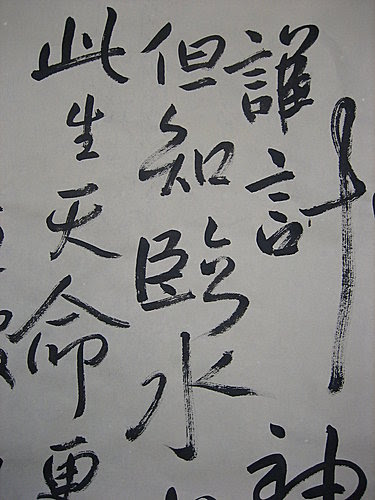 誰計神
但知臨水
此生天命更